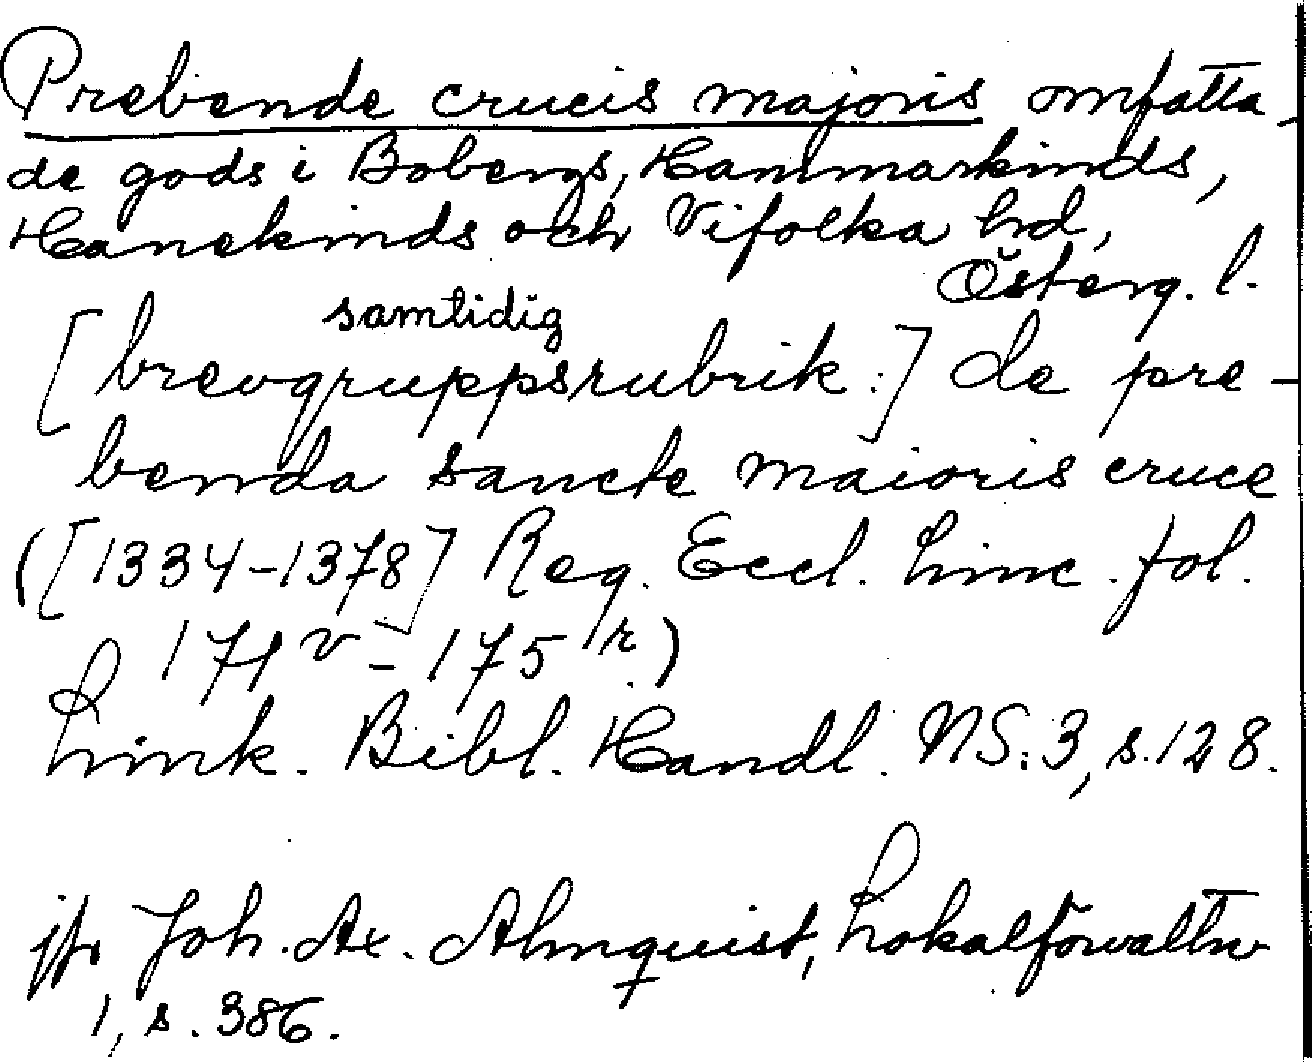 Prebende crucis majoris omfatta-
de gods i Bobergs, Hammarkinds,
Hanekinds och Vifolka hd,
Österg. l.
samtidig
[brevgruppsrubrik:] de pre-
benda sancte maioris cruce
([1334-1378] Reg. Eccl. Linc. fol.
171v - 175r.)
Link. Bibl. Handl. NS:3, s.128.
jfr Joh. Ax. Almquist, Lokalförvaltn
1, s. 386.